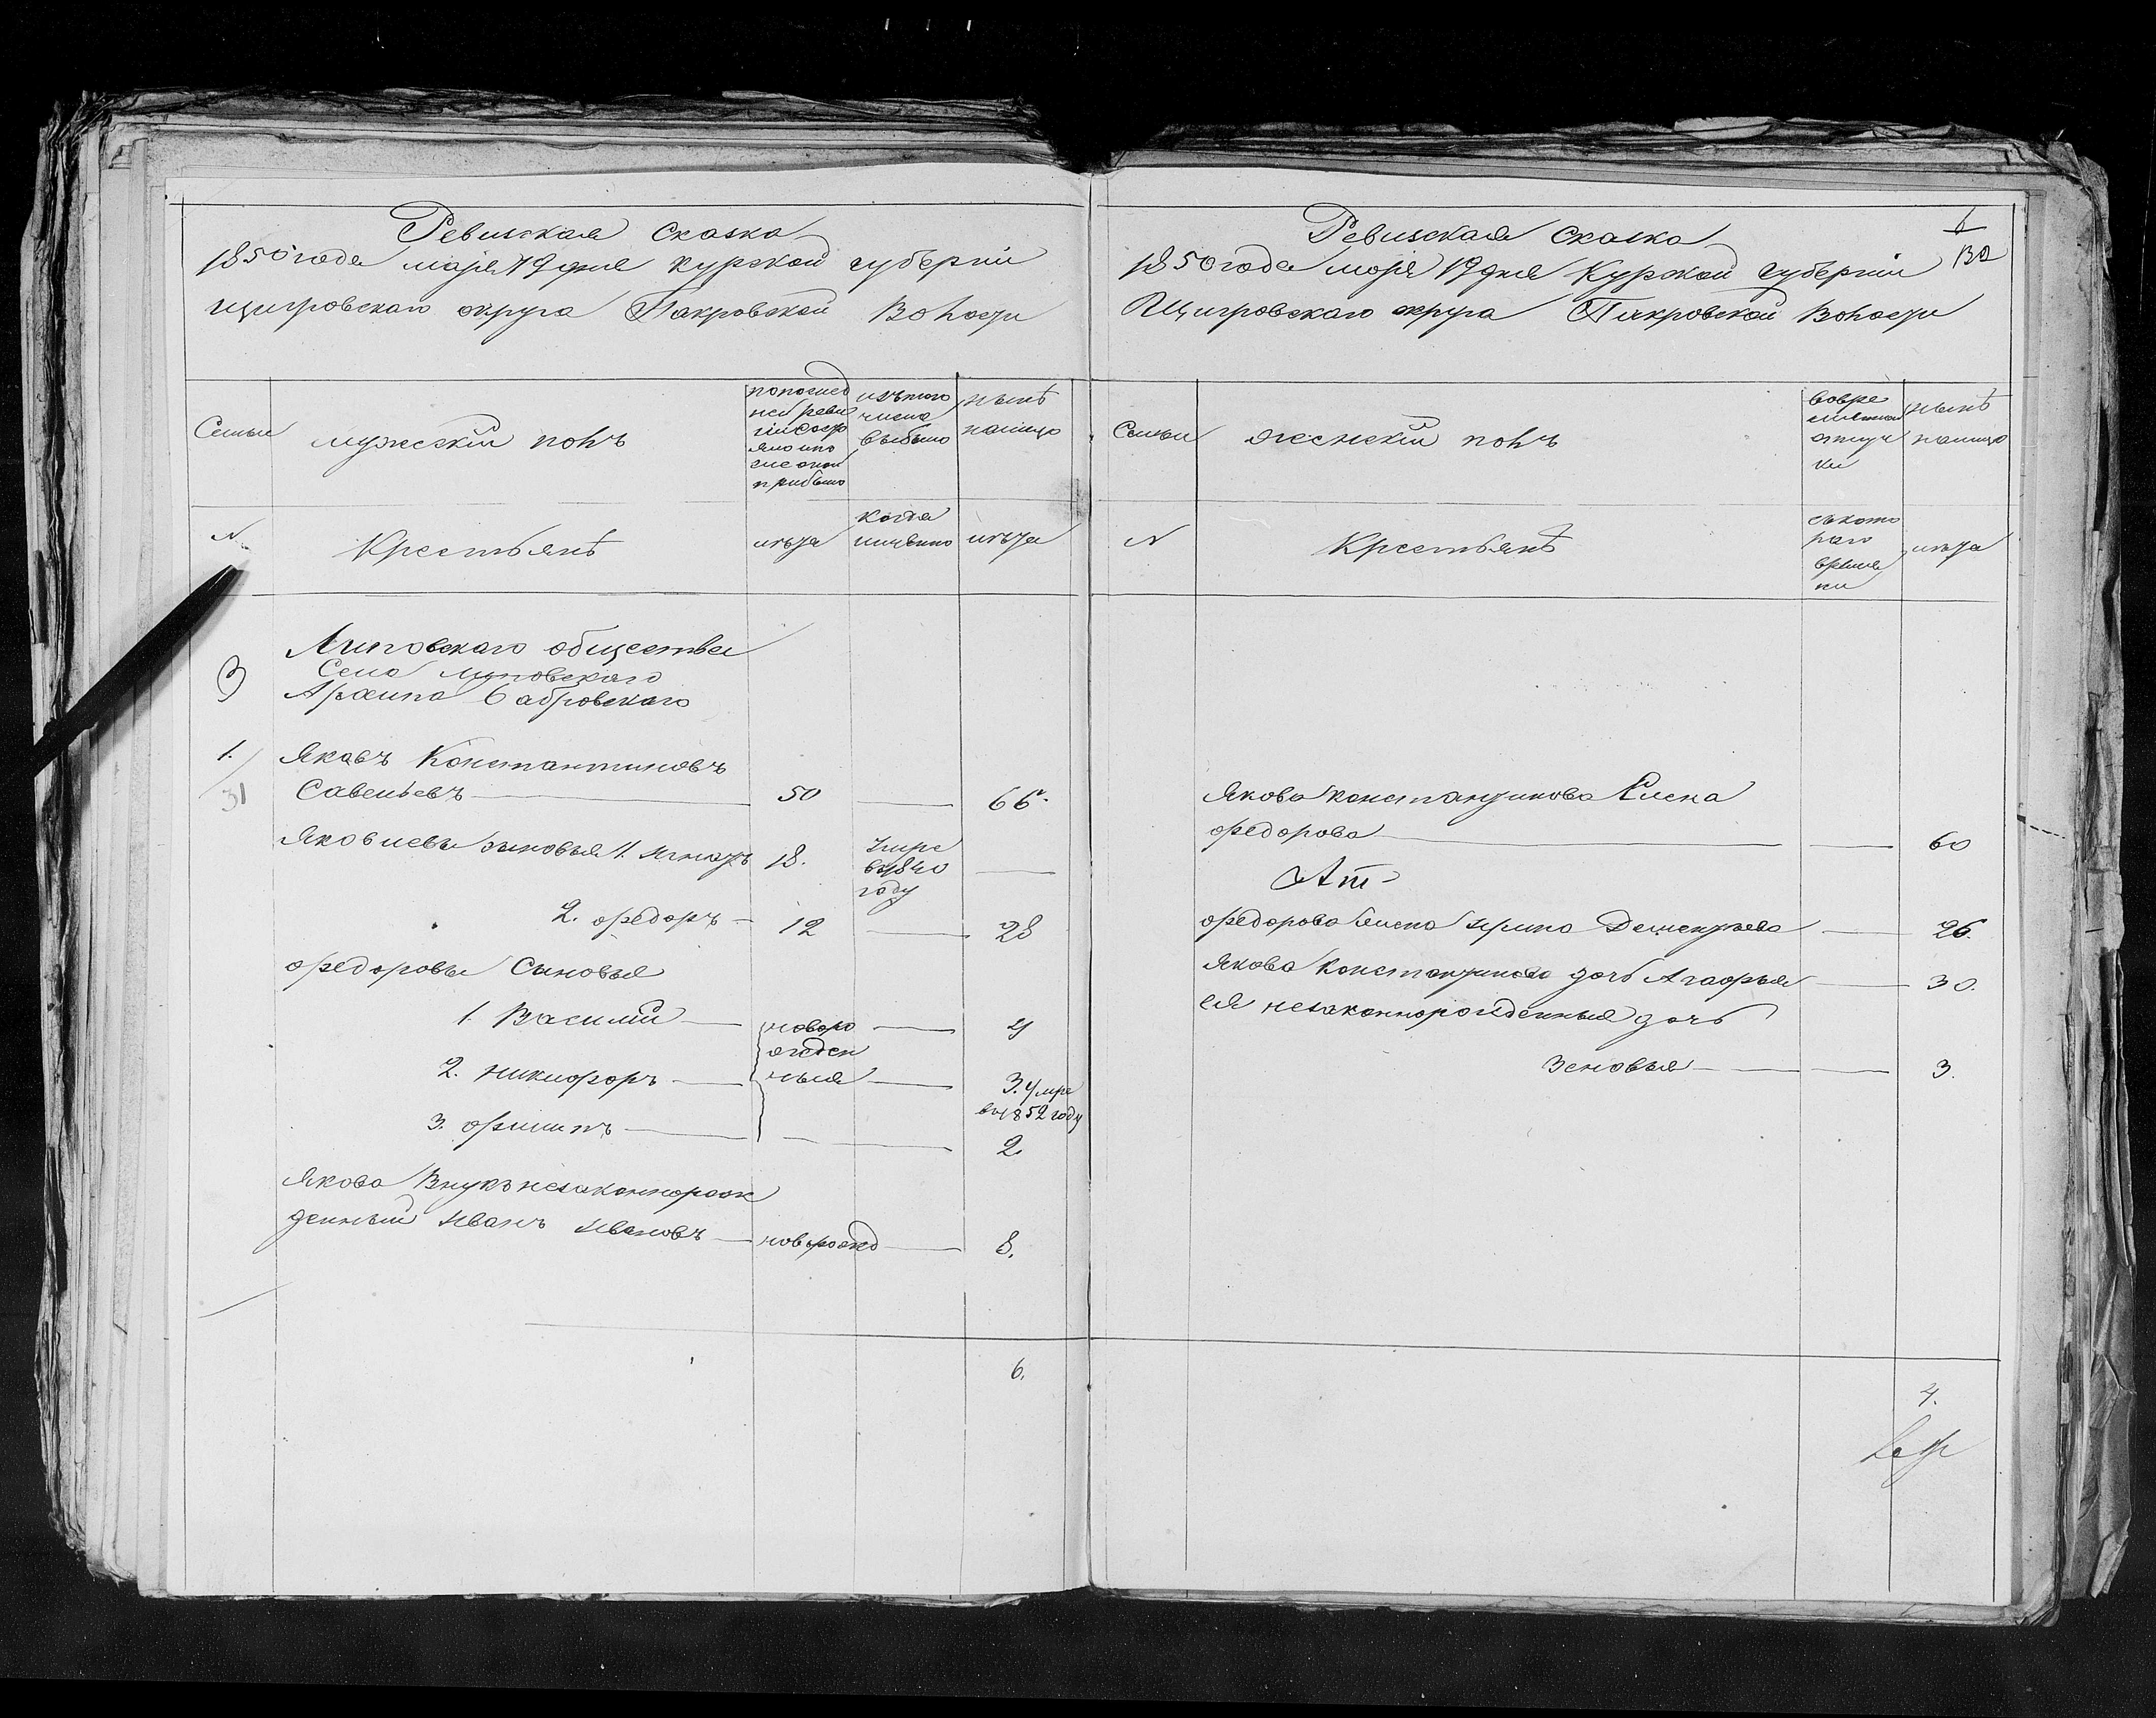 Ревизская сказка
1850 года маія 19 дня курской губерніи
щигровскаго округа Пакровской Волости
Семьи
мужескій полъ
попослед
ней реви
зіи состо
яло ипо
сле оной
прибыло
изътого
числа
выбыло
нынѣ
налицо
N
Крестьянѣ
лѣта
когда
имянно
лѣта
Липовскаго общества
Села липовскаго
3
Архипа бабровскаго
1.
Яковъ Константиновъ
31
Савельевъ 50 66.
Яковлевы сыновья 1. игнатъ 18.
умре
в 1840
году
2. ѳедоръ 12 28
ѳедоровы сыновья
1. Василий 4
новоро
жден
ныя
2. никифоръ 3. умре
въ 1852 году
3. филипъ 2
Якова Внукъ незаконнорож
денный иванъ ивановъ новорожд 8.
6.
Ревизская сказка
1
132
1850 года маія 19 дня Курской губерніи
Щигровскаго округа Пакровской Волости
Семьи
женскій полъ
вовре
мянной
отлуч
ки
нынѣ
налицо
N
Крестьянѣ
съкото
раго
время
ни
лѣта
Якова константинова Елена
федорова 60
федорова жена ирина Дементьева 26.
Якова Константинова дочь Агафья 30.
ея незаконнорожденныя дочь
Зеновья 3.
4.